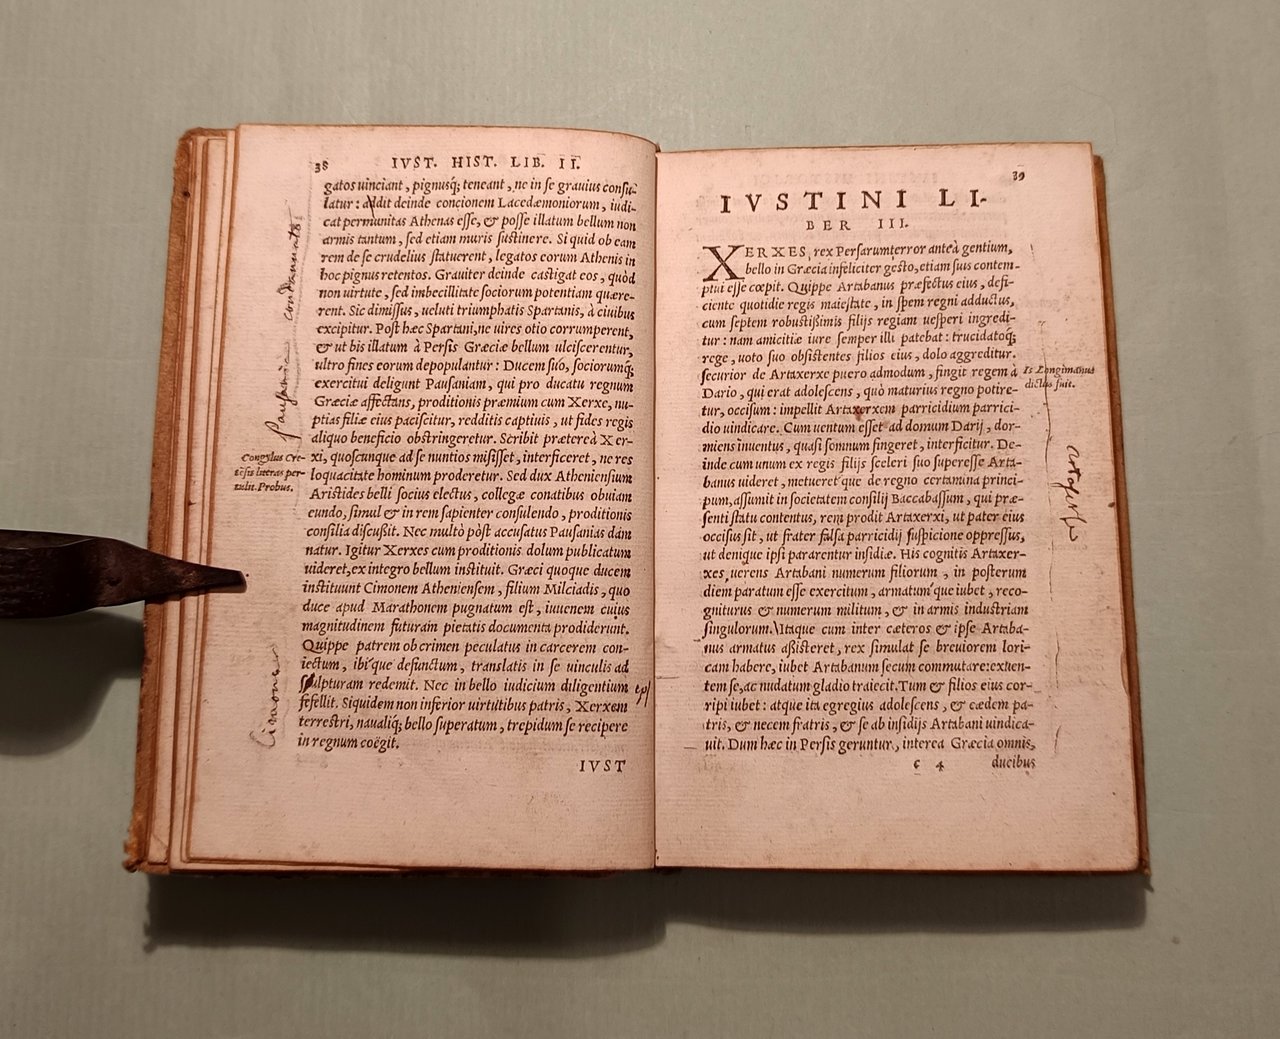 38
IVST. HIST. LIB. II.
gatos uinciant, pignusq́; teneant, ne in se grauius consu-
latur: addit deinde concionem Lacedæmoniorum, iudi-
cat permunitas Athenas esse, & posse illatum bellum non
armis tantum, sed etiam muris sustinere. Si quid ob eam
rem de se crudelius statuerent, legatos eorum Athenis in
hoc pignus retentos. Grauiter deinde castigat eos, quòd
non uirtute, sed imbecillitate sociorum potentiam quære-
rent. Sic dimissus, ueluti triumphatis Spartanis, à ciuibus
excipitur. Post hæc Spartani, ne uires otio corrumperent,
& ut bis illatum à Persis Græciæ bellum ulciscerentur,
ultro fines eorum depopulantur: Ducem suo, sociorumq́;
exercitui deligunt Pausaniam, qui pro ducatu regnum
Græciæ affectans, proditionis præmium cum Xerxe, nu-
ptias filiæ eius paciscitur, redditis captiuis, ut fides regis
aliquo beneficio obstringeretur. Scribit prætereà Xer-
xi, quoscunque ad se nuntios misisset, interficeret, ne res
loquacitate hominum proderetur. Sed dux Atheniensium
Aristides belli socius electus, collegæ conatibus obuiam
eundo, simul & in rem sapienter consulendo, proditionis
consilia discußit. Nec multò pòst accusatus Pausanias dam
natur. Igitur Xerxes cum proditionis dolum publicatum
uideret, ex integro bellum instituit. Græci quoque ducem
instituunt Cimonem Atheniensem, filium Milciadis, quo
duce apud Marathonem pugnatum est, iuuenem cuius
magnitudinem futuram pietatis documenta prodiderunt.
Quippe patrem ob crimen peculatus in carcerem con-
iectum, ibi'que defunctum, translatis in se uinculis ad
sepulturam redemit. Nec in bello iudicium diligentium
fefellit. Siquidem non inferior uirtutibus patris, Xerxem
terrestri, naualiq́; bello superatum, trepidum se recipere
in regnum coëgit.
IVST
Pausania condannato
Congylus Cre-
tesis literas per-
tulit. Probus.
Cimone
39
IVSTINI LI-
BER III.
XERXES, rex Persarum terror anteà gentium,
bello in Græcia infeliciter gesto, etiam suis contem-
ptui esse cœpit. Quippe Artabanus præfectus eius, defi-
ciente quotidie regis maiestate, in spem regni adductus,
cum septem robustißimis filijs regiam uesperi ingredi-
tur: nam amicitiæ iure semper illi patebat: trucidatoq́;
rege, uoto suo obsistentes filios eius, dolo aggreditur.
securior de Artaxerxe puero admodum, fingit regem à
Dario, qui erat adolescens, quò maturius regno potire-
tur, occisum: impellit Artaxerxem parricidium parrici-
dio uindicare. Cum uentum esset ad domum Darij, dor-
miens inuentus, quasi somnum fingeret, interficitur. De-
inde cum unum ex regis filijs sceleri suo superesse Arta-
banus uideret, metueret'que de regno certamina princi-
pum, assumit in societatem consilij Baccabassum, qui præ-
senti statu contentus, rem prodit Artaxerxi, ut pater eius
occisus sit, ut frater falsa parricidij suspicione oppressus,
ut denique ipsi pararentur insidiæ. His cognitis Artaxer-
xes, uerens Artabani numerum filiorum, in posterum
diem paratum esse exercitum, armatum'que iubet, reco-
gniturus & numerum militum, & in armis industriam
singulorum. Itaque cum inter cæteros & ipse Artaba-
nus armatus aßisteret, rex simulat se breuiorem lori-
cam habere, iubet Artabanum secum commutare: exuen-
tem se, ac nudatum gladio traiecit. Tum & filios eius cor-
ripi iubet: atque ita egregius adolescens, & cædem pa-
tris, & necem fratris, & se ab insidijs Artabani uindica-
uit. Dum hæc in Persis geruntur, interea Græcia omnis,
c 4 ducibus
Is Longimanus
dictus fuit.